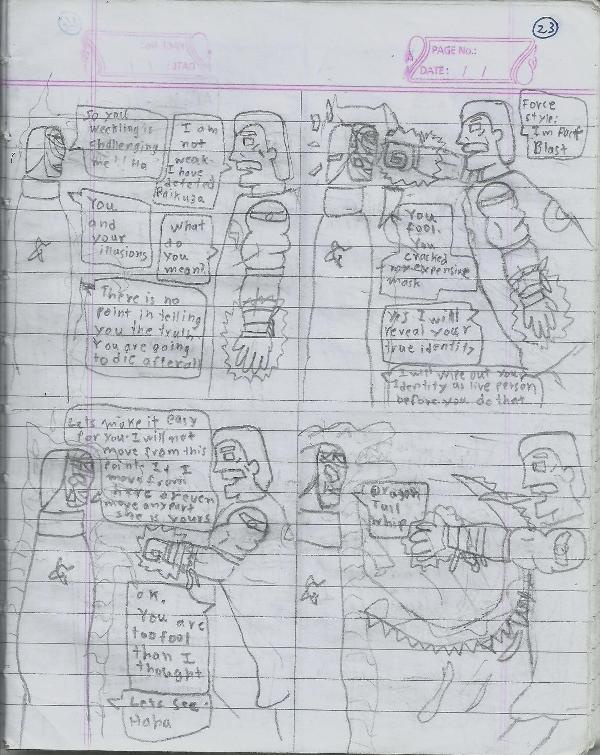 23
PAGE No.:
DATE: / /
So you
weekling is
challenging
me!! Ha
I am
not
weak
I have
defeted
Raikuza
You
and
your
illusions
What
do
you
mean?
There is no
point in telling
you the truth
You are going
to die afterall
Force
style:
Impact
Blast
You
fool.
You
cracked
my expensive
mask
Yes I will
reveal your
true identity
I will wipe out your
identity as live person
before you do that
Lets make it easy
for you. I will not
move from this
point. If I
move from
here or even
move any part
she is yours
OK.
You are
too fool
than I
thought
Lets see.
Haha
Dragon
Tail
Whip